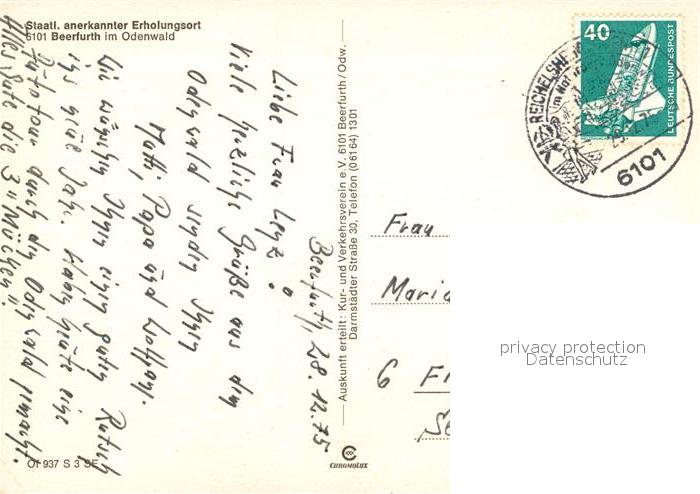 Staatl. anerkannter Erholungsort
6101 Beerfurth im Odenwald
Beerfurth, 28.12.75
Liebe Frau Lenz!
Viele herzliche Grüße aus dem
Odenwald senden Ihnen
Mutti, Papa und Wolfgang.
Wir wünschen Ihnen einen guten Rutsch
ins neue Jahr. Haben heute eine
Autotour durch den Odenwald gemacht.
Alles Gute die 3 "Müchen".
Auskunft erteilt: Kur- und Verkehrsverein e.V. 6101 Beerfurth / Odw.
Darmstädter Straße 30, Telefon (06164) 1301
40
DEUTSCHE BUNDESPOST
REICHELSHE
6101
Frau
Maria
6 F
privacy protection
Datenschutz
Of 937 S 3 SE
CHROMOLUX